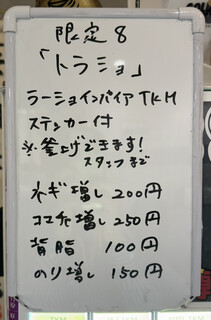 限定8
「トラショ」
ラーショインパイア TKM
ステッカー付
※釜揚げできます!
スタッフまで
ネギ増し 200円
ココチャ増し 250円
背脂 100円
のり増し 150円
TKM